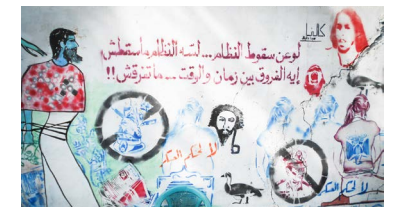 لو عن سقوط النظام ... لسه النظام ماسقطش
إيه الفروق بين زمان والوقت ... ما تفرقش !!
لا لحكم العسكر
لا لحكم العسكر